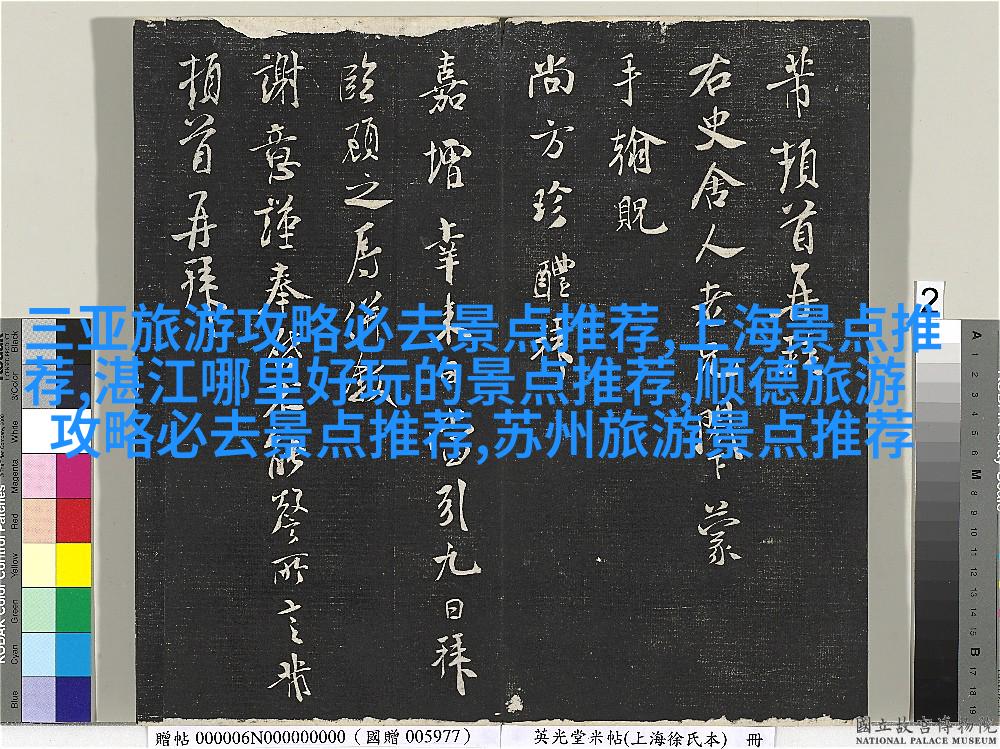 芾頓首再拜
右史舍人老兄閣下蒙
手翰貺
尚方珍醴拜
嘉增幸來日當引九日拜
臨顧之
謝意謹奉啓不能罄所言芾
頓首再拜
三亚旅游攻略必去景点推荐,上海景点推
荐,湛江哪里好玩的景点推荐,顺德旅游
攻略必去景点推荐,苏州旅游景点推荐
2
Black
3/Color
White
Magenta
Red
Yellow
Green
Cyan
Blue
A
M
B
17
18
19
贈帖 000006N000000000 (國贈 005977)
英光堂米帖(上海徐氏本) 冊
國立故宮博物院
NATIONAL PALACE MUSEUM